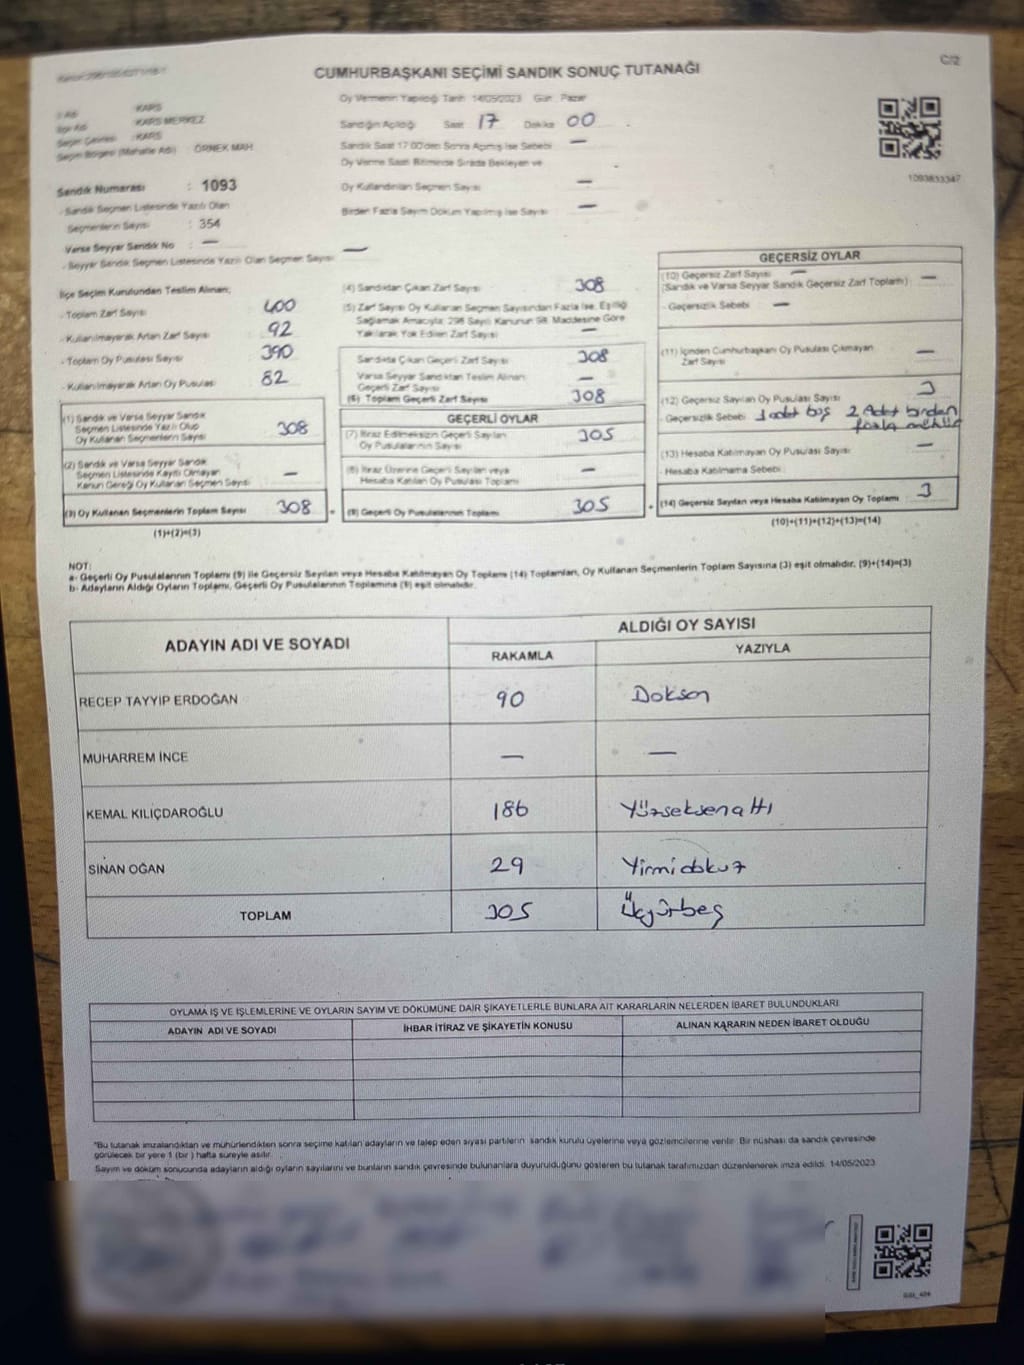 C/2
CUMHURBAŞKANI SEÇİMİ SANDIK SONUÇ TUTANAĞI
Oy Vermenin Yapıldığı Tarih 14/05/2023 Gün : Pazar
İl Adı : KARS
İlçe Adı : KARS MERKEZ
Seçim Çevresi : KARS
Seçim Bölgesi (Mahalle Adı) : ÖRNEK MAH
Sandığın Açıldığı Saat 17 Dakika 00
Sandık Saat 17:00'den Sonra Açılmış İse Sebebi —
Oy Verme Saati Bitiminde Sırada Bekleyen ve
Oy Kullandırılan Seçmen Sayısı —
Birden Fazla Sayım Döküm Yapılmış İse Sayısı —
1093833347
Sandık Numarası : 1093
- Sandık Seçmen Listesinde Yazılı Olan
Seçmenlerin Sayısı : 354
Varsa Seyyar Sandık No : —
- Seyyar Sandık Seçmen Listesinde Yazılı Olan Seçmen Sayısı : —
İlçe Seçim Kurulundan Teslim Alınan;
- Toplam Zarf Sayısı 400
- Kullanılmayarak Artan Zarf Sayısı 92
- Toplam Oy Pusulası Sayısı 390
- Kullanılmayarak Artan Oy Pusulası 82
(1) Sandık ve Varsa Seyyar Sandık
Seçmen Listesinde Yazılı Olup
Oy Kullanan Seçmenlerin Sayısı 308
(2) Sandık ve Varsa Seyyar Sandık
Seçmen Listesinde Kayıtlı Olmayan
Kanun Gereği Oy Kullanan Seçmen Sayısı —
(3) Oy Kullanan Seçmenlerin Toplam Sayısı 308
(1)+(2)=(3)
(4) Sandıktan Çıkan Zarf Sayısı 308
(5) Zarf Sayısı Oy Kullanan Seçmen Sayısından Fazla İse, Eşitliği
Sağlamak Amacıyla; 298 Sayılı Kanunun 98. Maddesine Göre
Yakılarak Yok Edilen Zarf Sayısı —
Sandıkta Çıkan Geçerli Zarf Sayısı 308
Varsa Seyyar Sandıktan Teslim Alınan
Geçerli Zarf Sayısı —
(6) Toplam Geçerli Zarf Sayısı 308
GEÇERLİ OYLAR
(7) İtiraz Edilmeksizin Geçerli Sayılan
Oy Pusulalarının Sayısı 305
(8) İtiraz Üzerine Geçerli Sayılan veya
Hesaba Katılan Oy Pusulası Toplamı —
(9) Geçerli Oy Pusulalarının Toplamı 305
GEÇERSİZ OYLAR
(10) Geçersiz Zarf Sayısı —
(Sandık ve Varsa Seyyar Sandık Geçersiz Zarf Toplamı) : —
- Geçersizlik Sebebi : —
(11) İçinden Cumhurbaşkanı Oy Pusulası Çıkmayan
Zarf Sayısı —
(12) Geçersiz Sayılan Oy Pusulası Sayısı 3
- Geçersizlik Sebebi : 1 adet boş 2 Adet birden
fazla mühür
(13) Hesaba Katılmayan Oy Pusulası Sayısı —
- Hesaba Katılmama Sebebi :
(14) Geçersiz Sayılan veya Hesaba Katılmayan Oy Toplamı 3
(10)+(11)+(12)+(13)=(14)
NOT:
a- Geçerli Oy Pusulalarının Toplamı (9) ile Geçersiz Sayılan veya Hesaba Katılmayan Oy Toplamı (14) Toplamları, Oy Kullanan Seçmenlerin Toplam Sayısına (3) eşit olmalıdır. (9)+(14)=(3)
b- Adayların Aldığı Oyların Toplamı, Geçerli Oy Pusulalarının Toplamına (9) eşit olmalıdır.
ADAYIN ADI VE SOYADI ALDIĞI OY SAYISI
RAKAMLA YAZIYLA
RECEP TAYYİP ERDOĞAN 90 Doksan
MUHARREM İNCE — —
KEMAL KILIÇDAROĞLU 186 Yüzseksenaltı
SİNAN OĞAN 29 Yirmidokuz
TOPLAM 305 Üçyüzbeş
OYLAMA İŞ VE İŞLEMLERİNE VE OYLARIN SAYIM VE DÖKÜMÜNE DAİR ŞİKAYETLERLE BUNLARA AİT KARARLARIN NELERDEN İBARET BULUNDUKLARI
ADAYIN ADI VE SOYADI İHBAR İTİRAZ VE ŞİKAYETİN KONUSU ALINAN KARARIN NEDEN İBARET OLDUĞU
"Bu tutanak imzalandıktan ve mühürlendikten sonra seçime katılan adayların ve talep eden siyasi partilerin sandık kurulu üyelerine veya gözlemcilerine verilir. Bir nüshası da sandık çevresinde
görülecek bir yere 1 (bir ) hafta süreyle asılır.
Sayım ve döküm sonucunda adayların aldığı oyların sayılarını ve bunların sandık çevresinde bulunanlara duyurulduğunu gösteren bu tutanak tarafımızdan düzenlenerek imza edildi. 14/05/2023